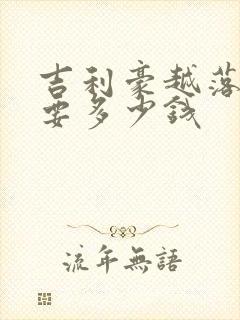 吉利豪越落
要多少钱
流年無語